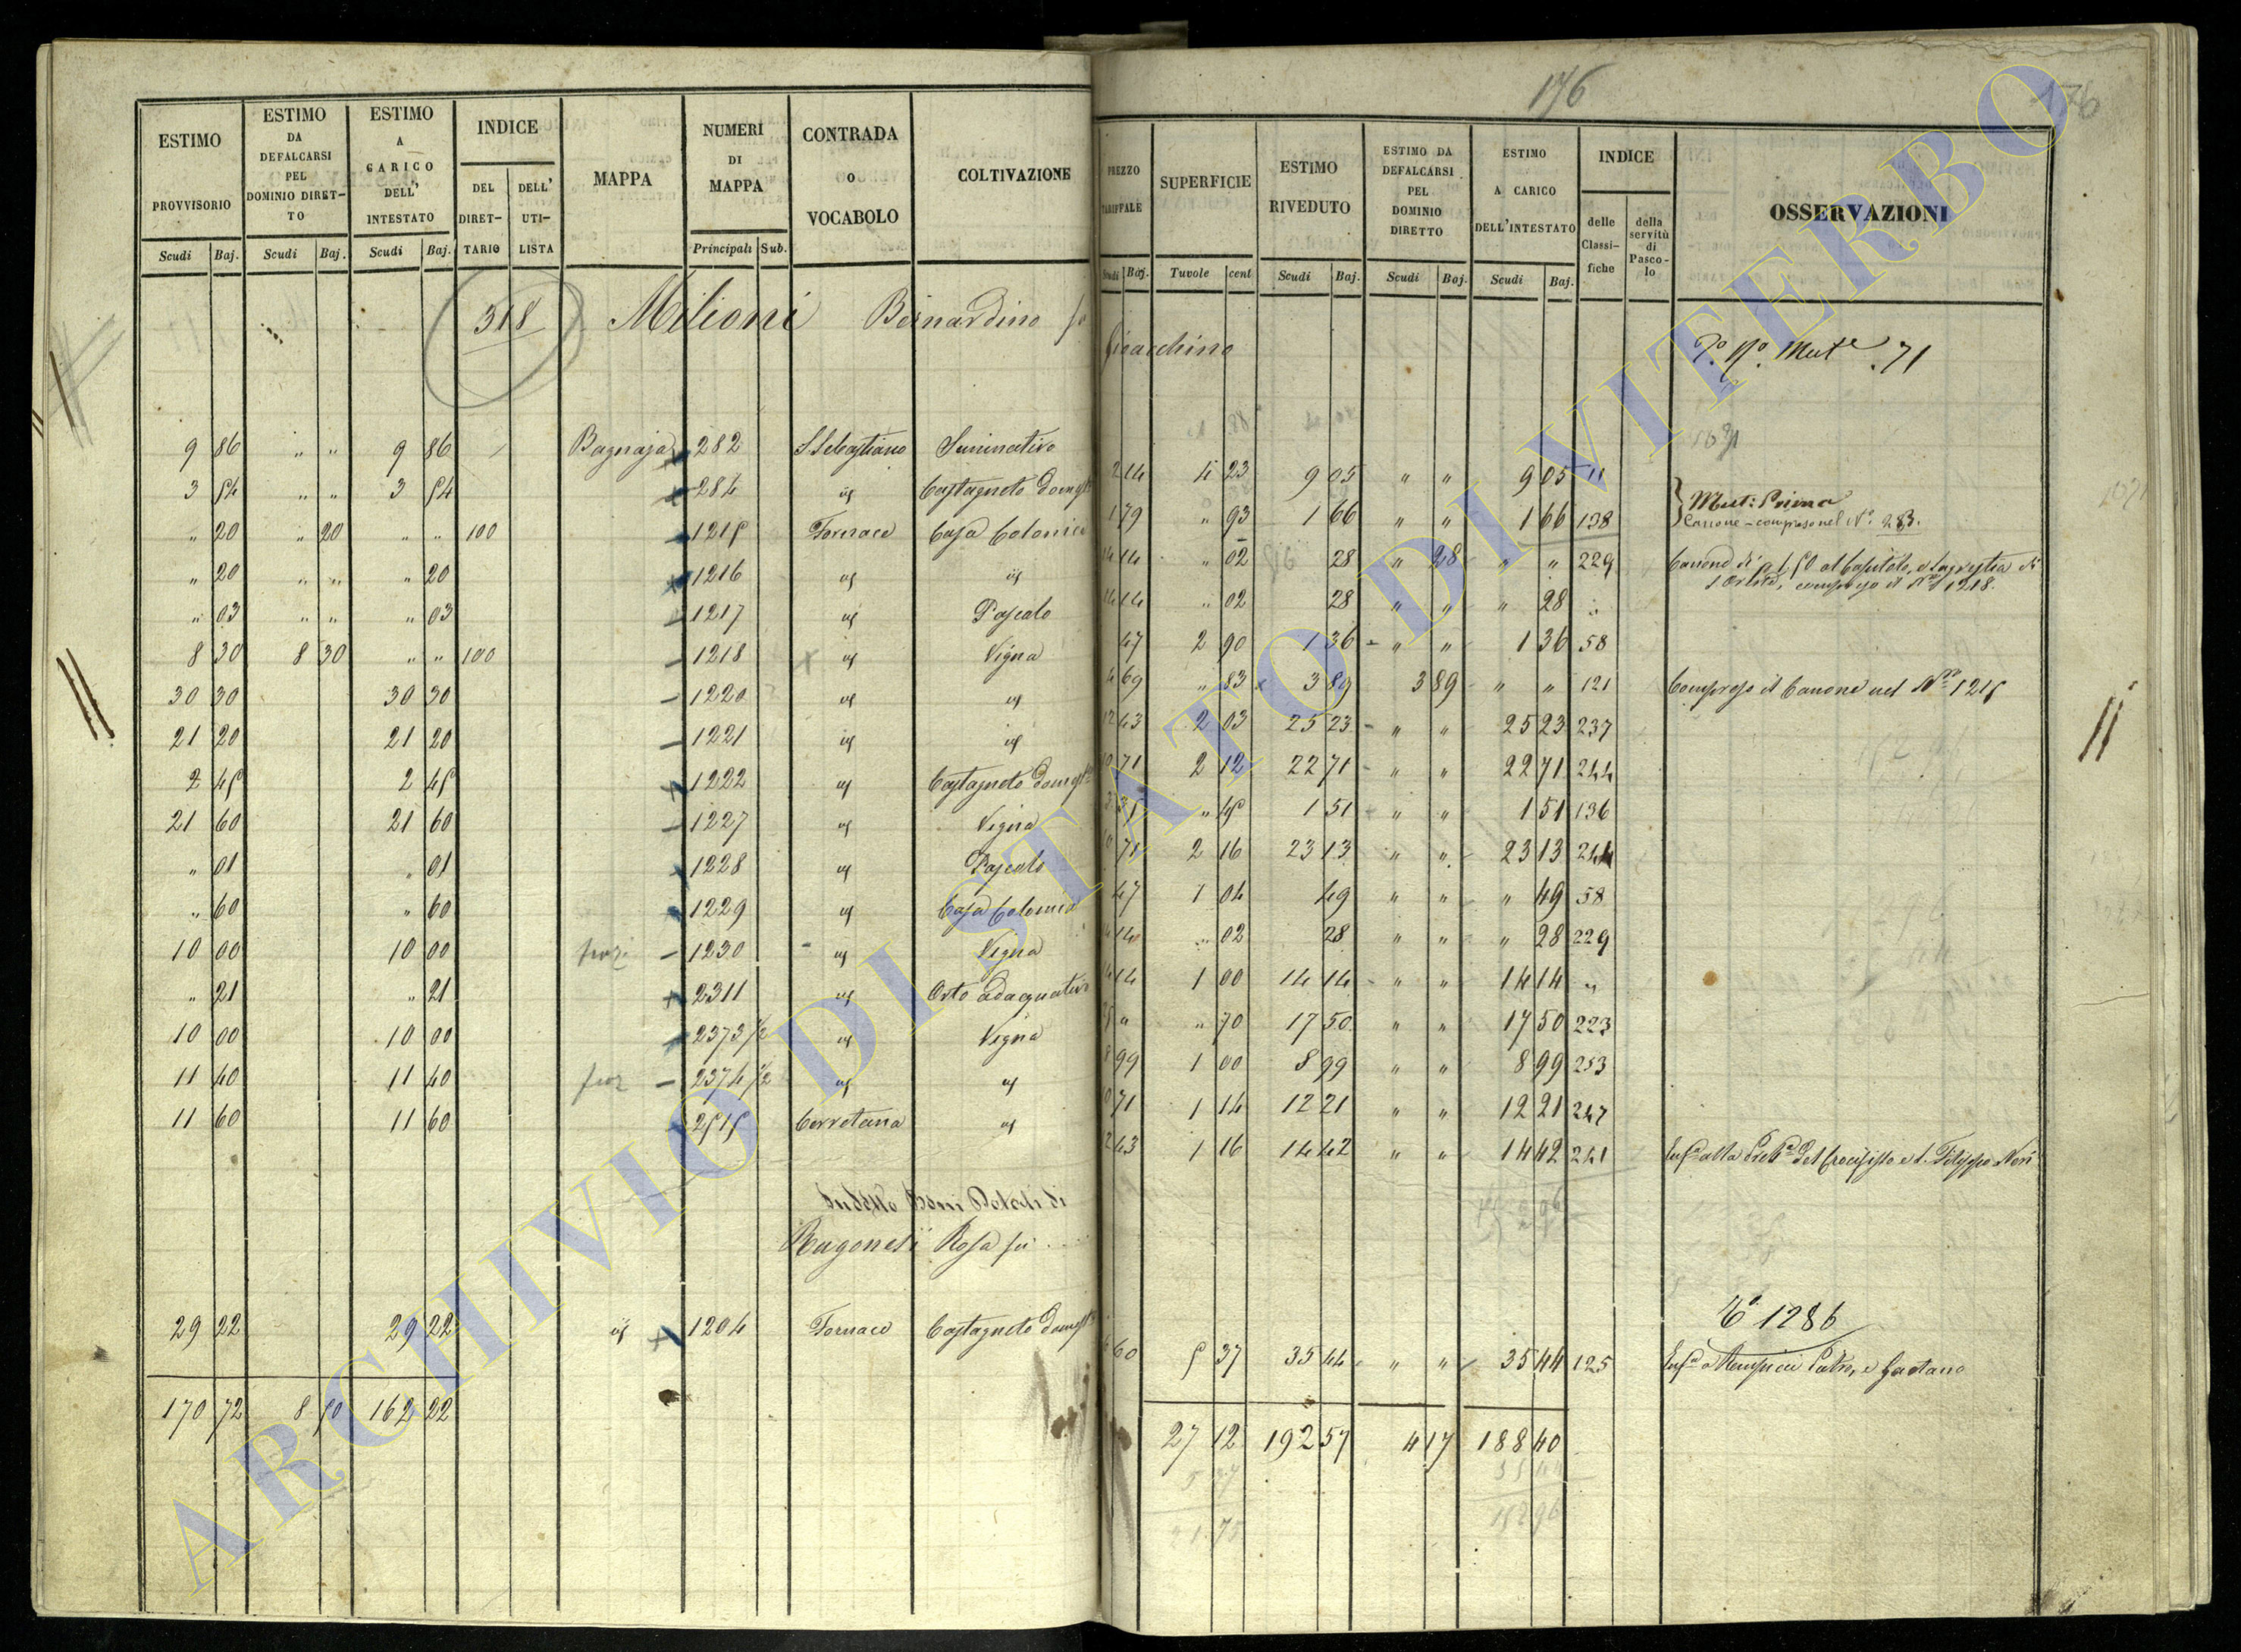 176
176
ESTIMO PROVVISORIO Scudi Baj.
ESTIMO DA DEFALCARSI PEL DOMINIO DIRETTO Scudi Baj.
ESTIMO A CARICO DELL' INTESTATO Scudi Baj.
INDICE DEL DIRETTARIO DELL' UTILISTA
MAPPA
NUMERI DI MAPPA Principali Sub.
CONTRADA O VOCABOLO
COLTIVAZIONE
PREZZO TARIFFALE Scudi Baj.
SUPERFICIE Tavole cent
ESTIMO RIVEDUTO Scudi Baj.
ESTIMO DA DEFALCARSI PEL DOMINIO DIRETTO Scudi Baj.
ESTIMO A CARICO DELL'INTESTATO Scudi Baj.
INDICE delle Classifiche della servitù di Pascolo
OSSERVAZIONI
318 Milioni Bernardino fu Gioacchino
71
9 86 " " 9 86 Bagnaja 282 S Sebastiano Seminativo 2 14 4 23 9 05 " " 9 05 11
3 54 " " 3 54 284 id Castagneto domest 1 79 " 93 1 66 " " 1 66 138 Mut: Prima
Canone compreso nel N° 283.
" 20 " 20 " " 100 1215 Fornace Casa Colonica 14 14 " 02 28 " 28 " " 229 Canone di 1 50 al Capitolo, e Sagrestia di
compreso il N° 1218.
" 20 " " " 20 1216 id id 14 14 " 02 28 " " " 28 "
" 03 " " " 03 1217 id Pascolo 47 2 90 1 36 " " 1 36 58
8 30 8 30 " " 100 1218 id Vigna 4 69 " 83 3 89 3 89 " " 121 Compreso il Canone nel N° 1215
30 30 30 30 1220 id id 12 43 2 03 25 23 " " 25 23 237
21 20 21 20 1221 id id 10 71 2 12 22 71 " " 22 71 244
2 45 2 45 1222 id Castagneto domest 3 37 " 45 1 51 " " 1 51 136
21 60 21 60 1227 id Vigna 10 71 2 16 23 13 " " 23 13 244
" 01 " 01 1228 id Pascolo 47 1 04 49 " " " 49 58
" 60 " 60 1229 id Casa Colonica 14 14 " 02 28 " " " 28 229
10 00 10 00 1230 id Vigna 14 14 1 00 14 14 " " 14 14 "
" 21 " 21 2311 id Orto adaquativo 25 " " 70 17 50 " " 17 50 223
10 00 10 00 2373 1/2 id Vigna 8 99 1 00 8 99 " " 8 99 253
11 40 11 40 2374 1/2 id id 10 71 1 14 12 21 " " 12 21 247
11 60 11 60 2515 Cerretana id 12 43 1 16 14 42 " " 14 42 241 Enf alla del Crocifisso e S. Filippo Neri
Suddetto Beni Dotali di
Ragonesi Rosa fu
C 1286
29 22 29 22 id 1204 Fornace Castagneto domest 6 60 5 37 35 44 " " 35 44 125 Enf a Pietro, e Gaetano
170 72 8 50 162 22 27 12 192 57 4 17 188 40
5 37 35 44
21 75 152 96
ARCHIVIO DI STATO DI VITERBO